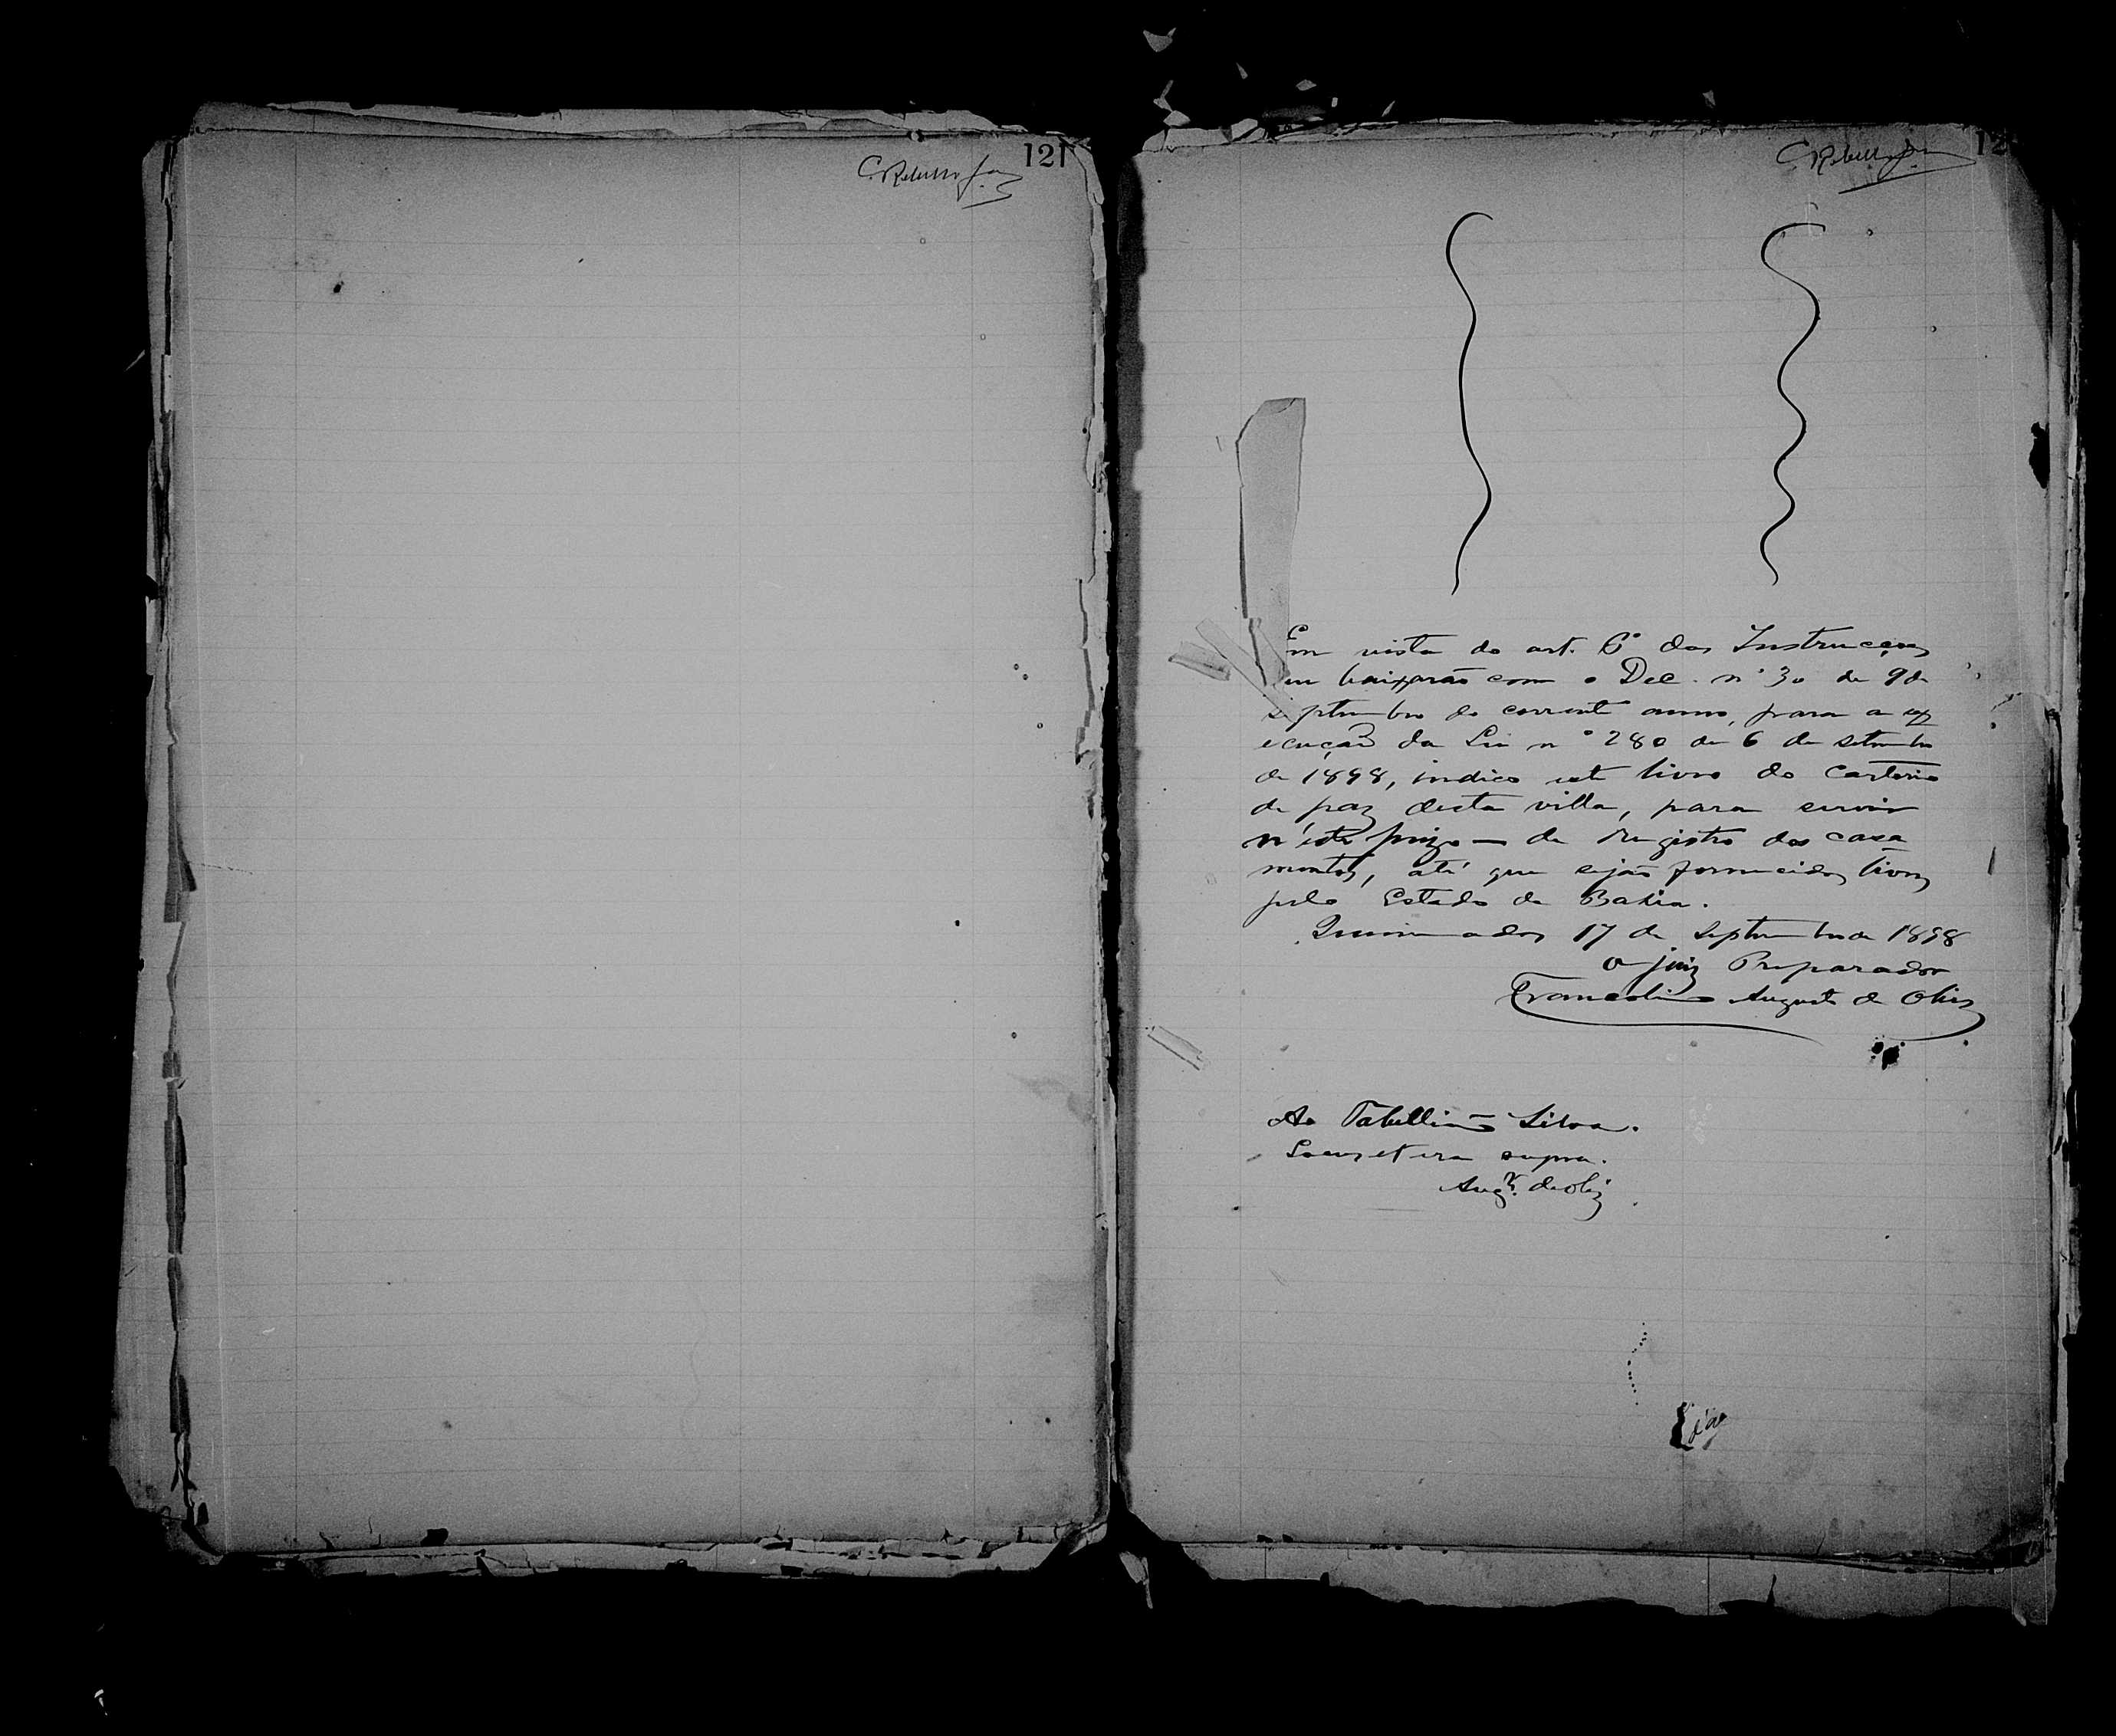 121
C. Rebello Jor
C. Rebello Jor
12
Em vista do art. 6º das Instrucções
que baixarão com o Dec. nº 30 de 9 de
septembro do corrente anno, para a ex
ecução da Lei nº 280 de 6 de setembro
de 1898, indico este livro do Cartorio
de paz desta villa, para servir
n'este juizo — de registro dos casa
mentos, até que sejão fornecidos livros
pelo Estado da Bahia.
Queimados 17 de Septembro de 1898
O juiz Preparador
Francolino Augusto de Olivª
Ao Tabellião Silva.
Locus et era supra.
Augto. de Olivª